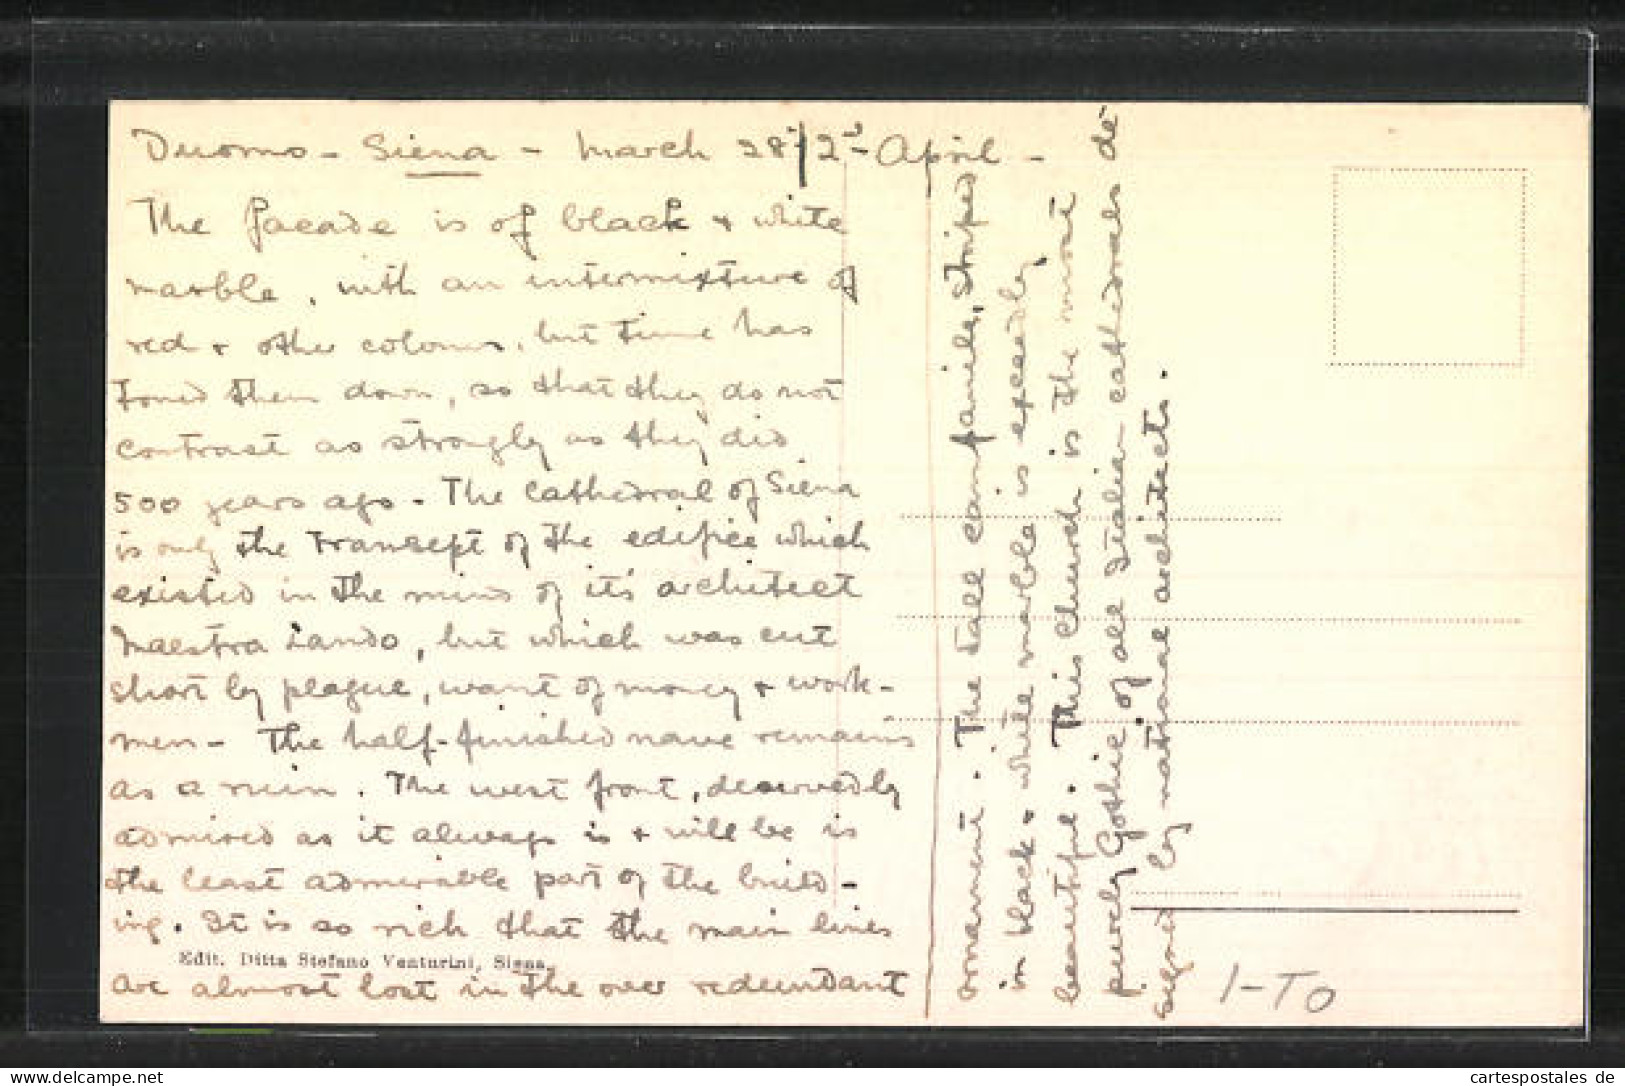 Duomo - Siena - March 28/2nd April -
The facade is of black + white
marble, with an intermixture of
red + other colours, but time has
toned them down, so that they do not
contrast as strongly as they did
500 years ago - The Cathedral of Siena
is only the transept of the edifice which
existed in the mind of it's architect
Maestra Lando, but which was cut
short by plague, want of money + work-
men - The half-finished nave remains
as a ruin. The west front, deservedly
admired as it always is + will be is
the least admirable part of the build-
ing. It is so rich that the main lines
Edit. Ditta Stefano Venturini, Siena.
are almost lost in the over redundant
ornament. The tall campanile, striped
in black + white marble is exceedly
beautiful. This Church is the most
purely Gothic of all Italian cathedrals de
signed by national architects.
1-TO
hpcpostcards
cartespostales de